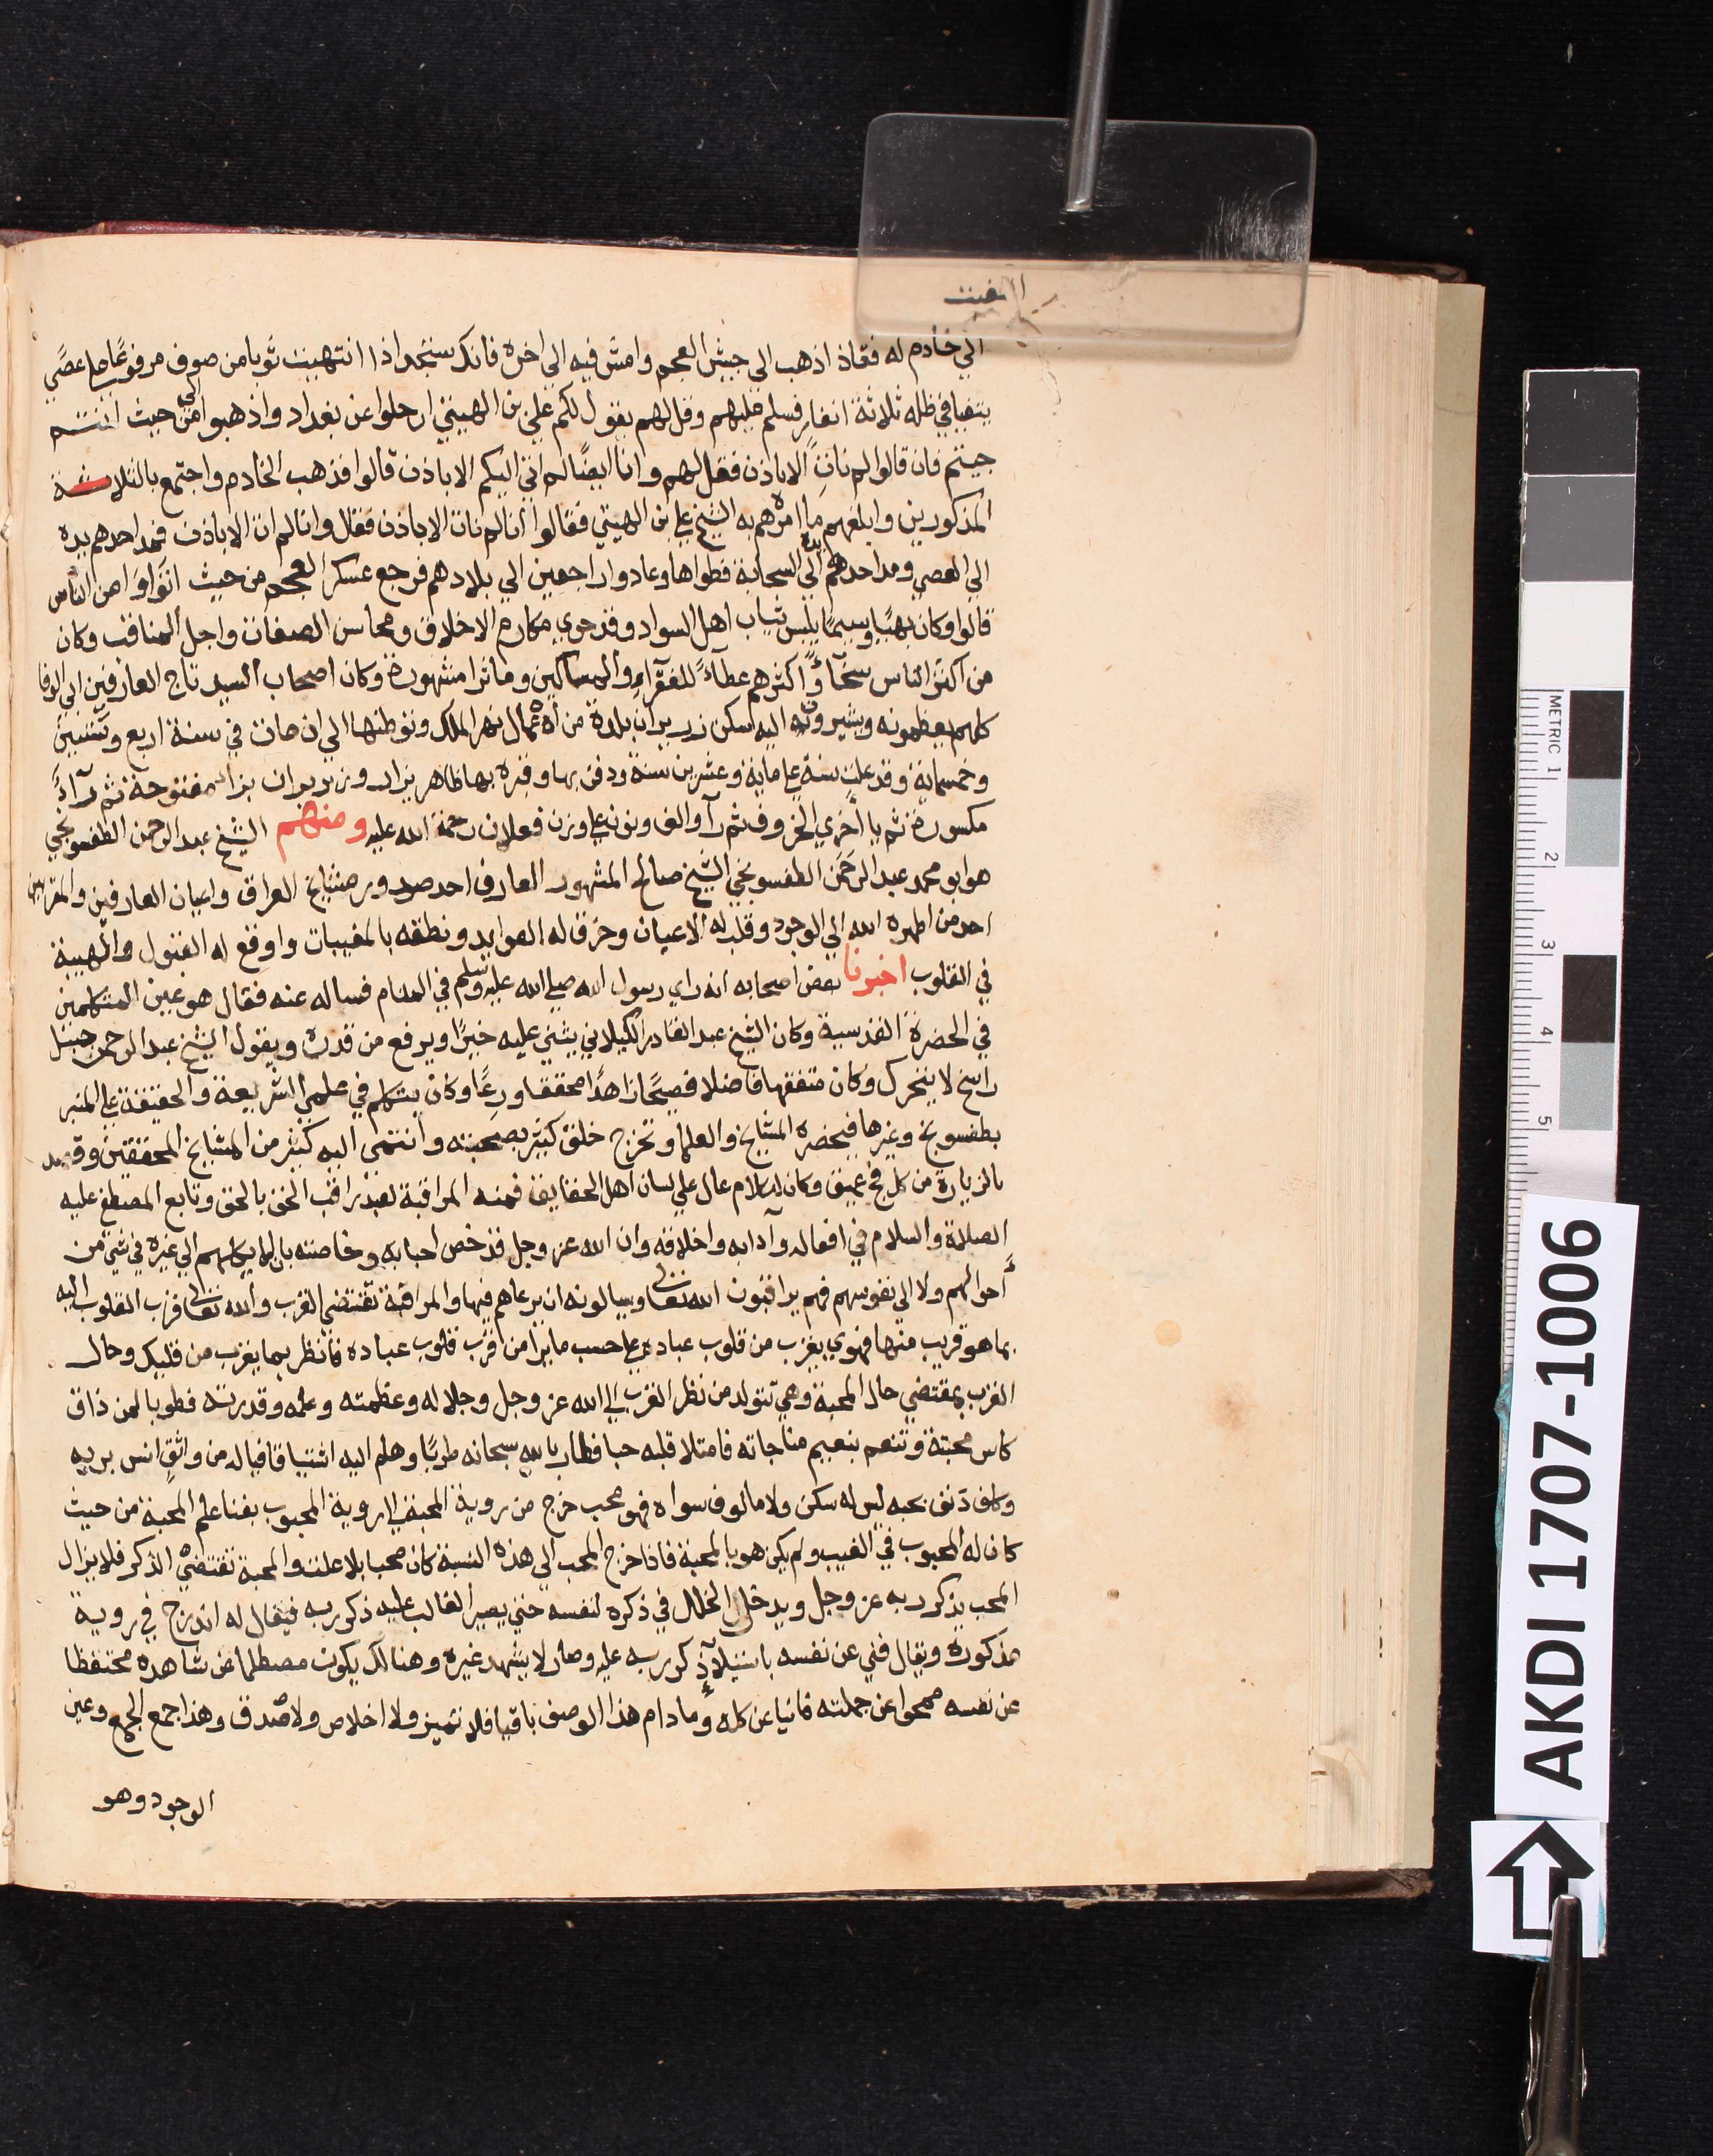 الي خادم له فقاذ اذهب الى جيش العجم وامش فيه الى اخره فانك ستجد اذا انتهيت ثوبا من صوف مرفوعا علي عصي
يتفيا في ظله ثلاثة انفار فسلم عليهم وقل لهم يقول لكم علي بن الهيتي ارحلوا عن بغداد واذهبوا الي من حيث انتم
جيتم فان قالوا لم ناتِ الا باذن فقل لهم وانا ايضًا لم اتي اليكم الا باذن قالوا فذهب الخادم واجتمع بالثلاثة
المذكورين وابلغهم ما امرهم به الشيخ علي بن الهيتي فقالوا انا لم نات الا باذن فقال وانا لم ات الا باذن فمد احدهم يده
الي العصي ومد احدهم يده الي السحابة فطواها وعادوا راجعين الي بلادهم فرجع عسكر العجم من حيث اتوا من الناس
قالوا وكان بهيًا وسيمًا يلبس ثياب اهل السواد وقد حوي مكارم الاخلاق ومحاسن الصفات واجل المناقب وكان
من اكثر الناس سخآءً واكثرهم عطآءً للفقرآءِ والمساكين وماثرا مشهورة وكان اصحاب السيد تاج العارفين ابي الوفا
كلهم يعظمونه ويشيرونه اليه سكن زريران بلدة من اعمال نهر الملك وتوطنها الي ان مات في سنة اربع وستين
وخمسماية وقد علت سنه علي ماية وعشرين سنة ودفن بها وقبره بها ظاهر يزار وزريران بزاء مفتوحة ثم رآءً
مكسورة ثم يا اخري الحروف ثم رآ والف ونون علي وزن فعلان رحمة الله عليه ومنهم الشيخ عبد الرحمن الطفسونجي
هو ابو محمد عبد الرحمن الطفسونجي الشيخ صالح المشهور العارف احد صدور مشايخ العراق واعيان العارفين والمقربين
احد من اظهره الله الي الوجود وقلب له الاعيان وخرق له العوايد ونطقه بالمغيبات واوقع له القبول والهيبة
في القلوب اخبرنا بعض اصحابه انه راي رسول الله صلي الله عليه وسلم في المنام فساله عنه فقال هو عين المتكلمين
في الحضرة القدسية وكان الشيخ عبد القادر الكيلاني يثني عليه خيرًا ويرفع من قدره ويقول الشيخ عبد الرحمن جبل
راسخ لا يتحرك وكان متفقها فاضلا فصيحًا زاهدًا محققا ورعًا وكان يتكلم في علمي الشريعة والحقيقة علي المنبر
بطفسونج وغيرها فيحضره المشايخ والعلما وتخرج خلق كثير بصحبته وانتمي اليه كثير من المشايخ المحققين وقصد
بالزيارة من كل فج عميق وكان له كلام عال علي لسان اهل الحقايق فمنه المراقبة لعبد راقب الحق بالحق وتابع المصطفي عليه
الصلاة والسلام في افعاله وآدابه واخلاقه وان الله عز وجل قد خص احبابه وخاصته بان لا يكلهم الي غيره في شيء من
أحوالهم ولا الي نفوسهم فهم يراقبون الله تعالي ويسالونه ان يرعاهم فيها والمراقبة تقتضي القرب والله تعالي قرب القلوب اليه
بما هو قريب منها فهوي يقرب من قلوب عباده علي حسب ما يرا من اقرب قلوب عباده فانظر بما يقرب من قلبك وحال
القرب يقتضي حال المحبة وهي تتولد من نظر القرب الي الله عز وجل وجلاله وعظمته وعلمه وقدرته فطوبا لمن ذاق
كاس محبتة وتنعم بنعيم مناجاته فامتلا قلبه حبا فطار بالله سبحانه طربًا وهام اليه اشتياقا فيا له من واثقٍ انس بربه
وكلف دنف بحبه ليس له سكن ولا مالوف سواه فهو محب خرج من روية المحبة الي روية المحبوب بفنا علم المحبة من حيث
كان له المحبوب في الغيب ولم يكن هو بالمحبة فاذا خرج المحب الي هذه النسبة كان محبا بلا علت والمحبة تقتضي الذكر فلا يزال
المحب يذكر ربه عز وجل ويدخل الخلل في ذكره لنفسه حتي يصير الغالب عليه ذكر ربه فيقال له اندرج في روية
مذكوره ويقال فني عن نفسه باستيلآءِ ذكر ربه عليه وصار لا يشهد غيره وهنالك يكون مصطلما عن شاهده مختفظا
عن نفسه ممحوا عن جملته فانيا عن كله وما دام هذا الوصف باقيا فلا تميز ولا اخلاص ولا صدق وهذا جمع الجمع وعين
الوجود وهو
AKDI 1707-1006
METRIC 1
2
3
4
5